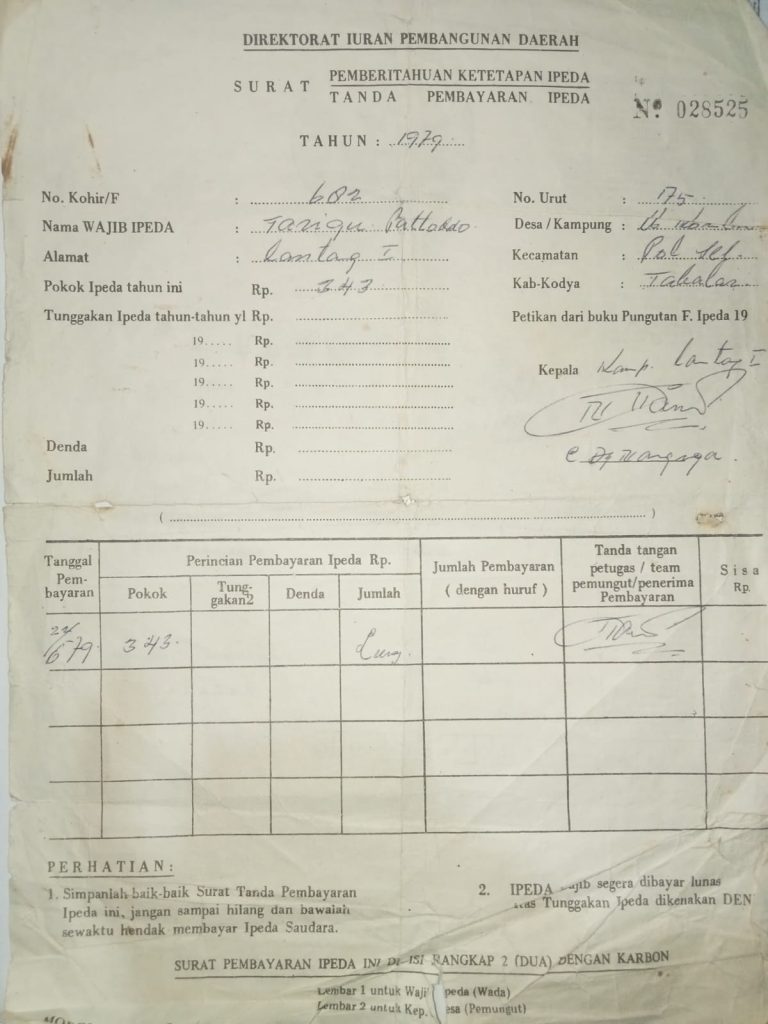 DIREKTORAT IURAN PEMBANGUNAN DAERAH
SURAT PEMBERITAHUAN KETETAPAN IPEDA
TANDA PEMBAYARAN IPEDA
No. 028525
TAHUN : 1979
No. Kohir/F : 682
No. Urut : 175
Nama WAJIB IPEDA : Tarigu
Desa/Kampung :
Alamat : Lantang I
Kecamatan : Pol Sel.
Pokok Ipeda tahun ini Rp. 343
Kab-Kodya : Takalar
Tunggakan Ipeda tahun-tahun yl Rp.
Petikan dari buku Pungutan F. Ipeda 19
19..... Rp.
19..... Rp.
19..... Rp.
19..... Rp.
19..... Rp.
Kepala Kamp. Lantang I
Denda Rp.
Jumlah Rp.
Tanggal Pem-bayaran
Perincian Pembayaran Ipeda Rp.
Pokok
Tung-gakan2
Denda
Jumlah
Jumlah Pembayaran
( dengan huruf )
Tanda tangan
petugas / team
pemungut/penerima
Pembayaran
Sisa
Rp.
343
PERHATIAN :
1. Simpanlah baik-baik Surat Tanda Pembayaran
Ipeda ini, jangan sampai hilang dan bawalah
sewaktu hendak membayar Ipeda Saudara.
2. IPEDA segera dibayar lunas
Tunggakan Ipeda dikenakan DEN
SURAT PEMBAYARAN IPEDA INI DI ISI RANGKAP 2 (DUA) DENGAN KARBON
Lembar 1 untuk Waji peda (Wada)
Lembar 2 untuk Kep. esa (Pemungut)